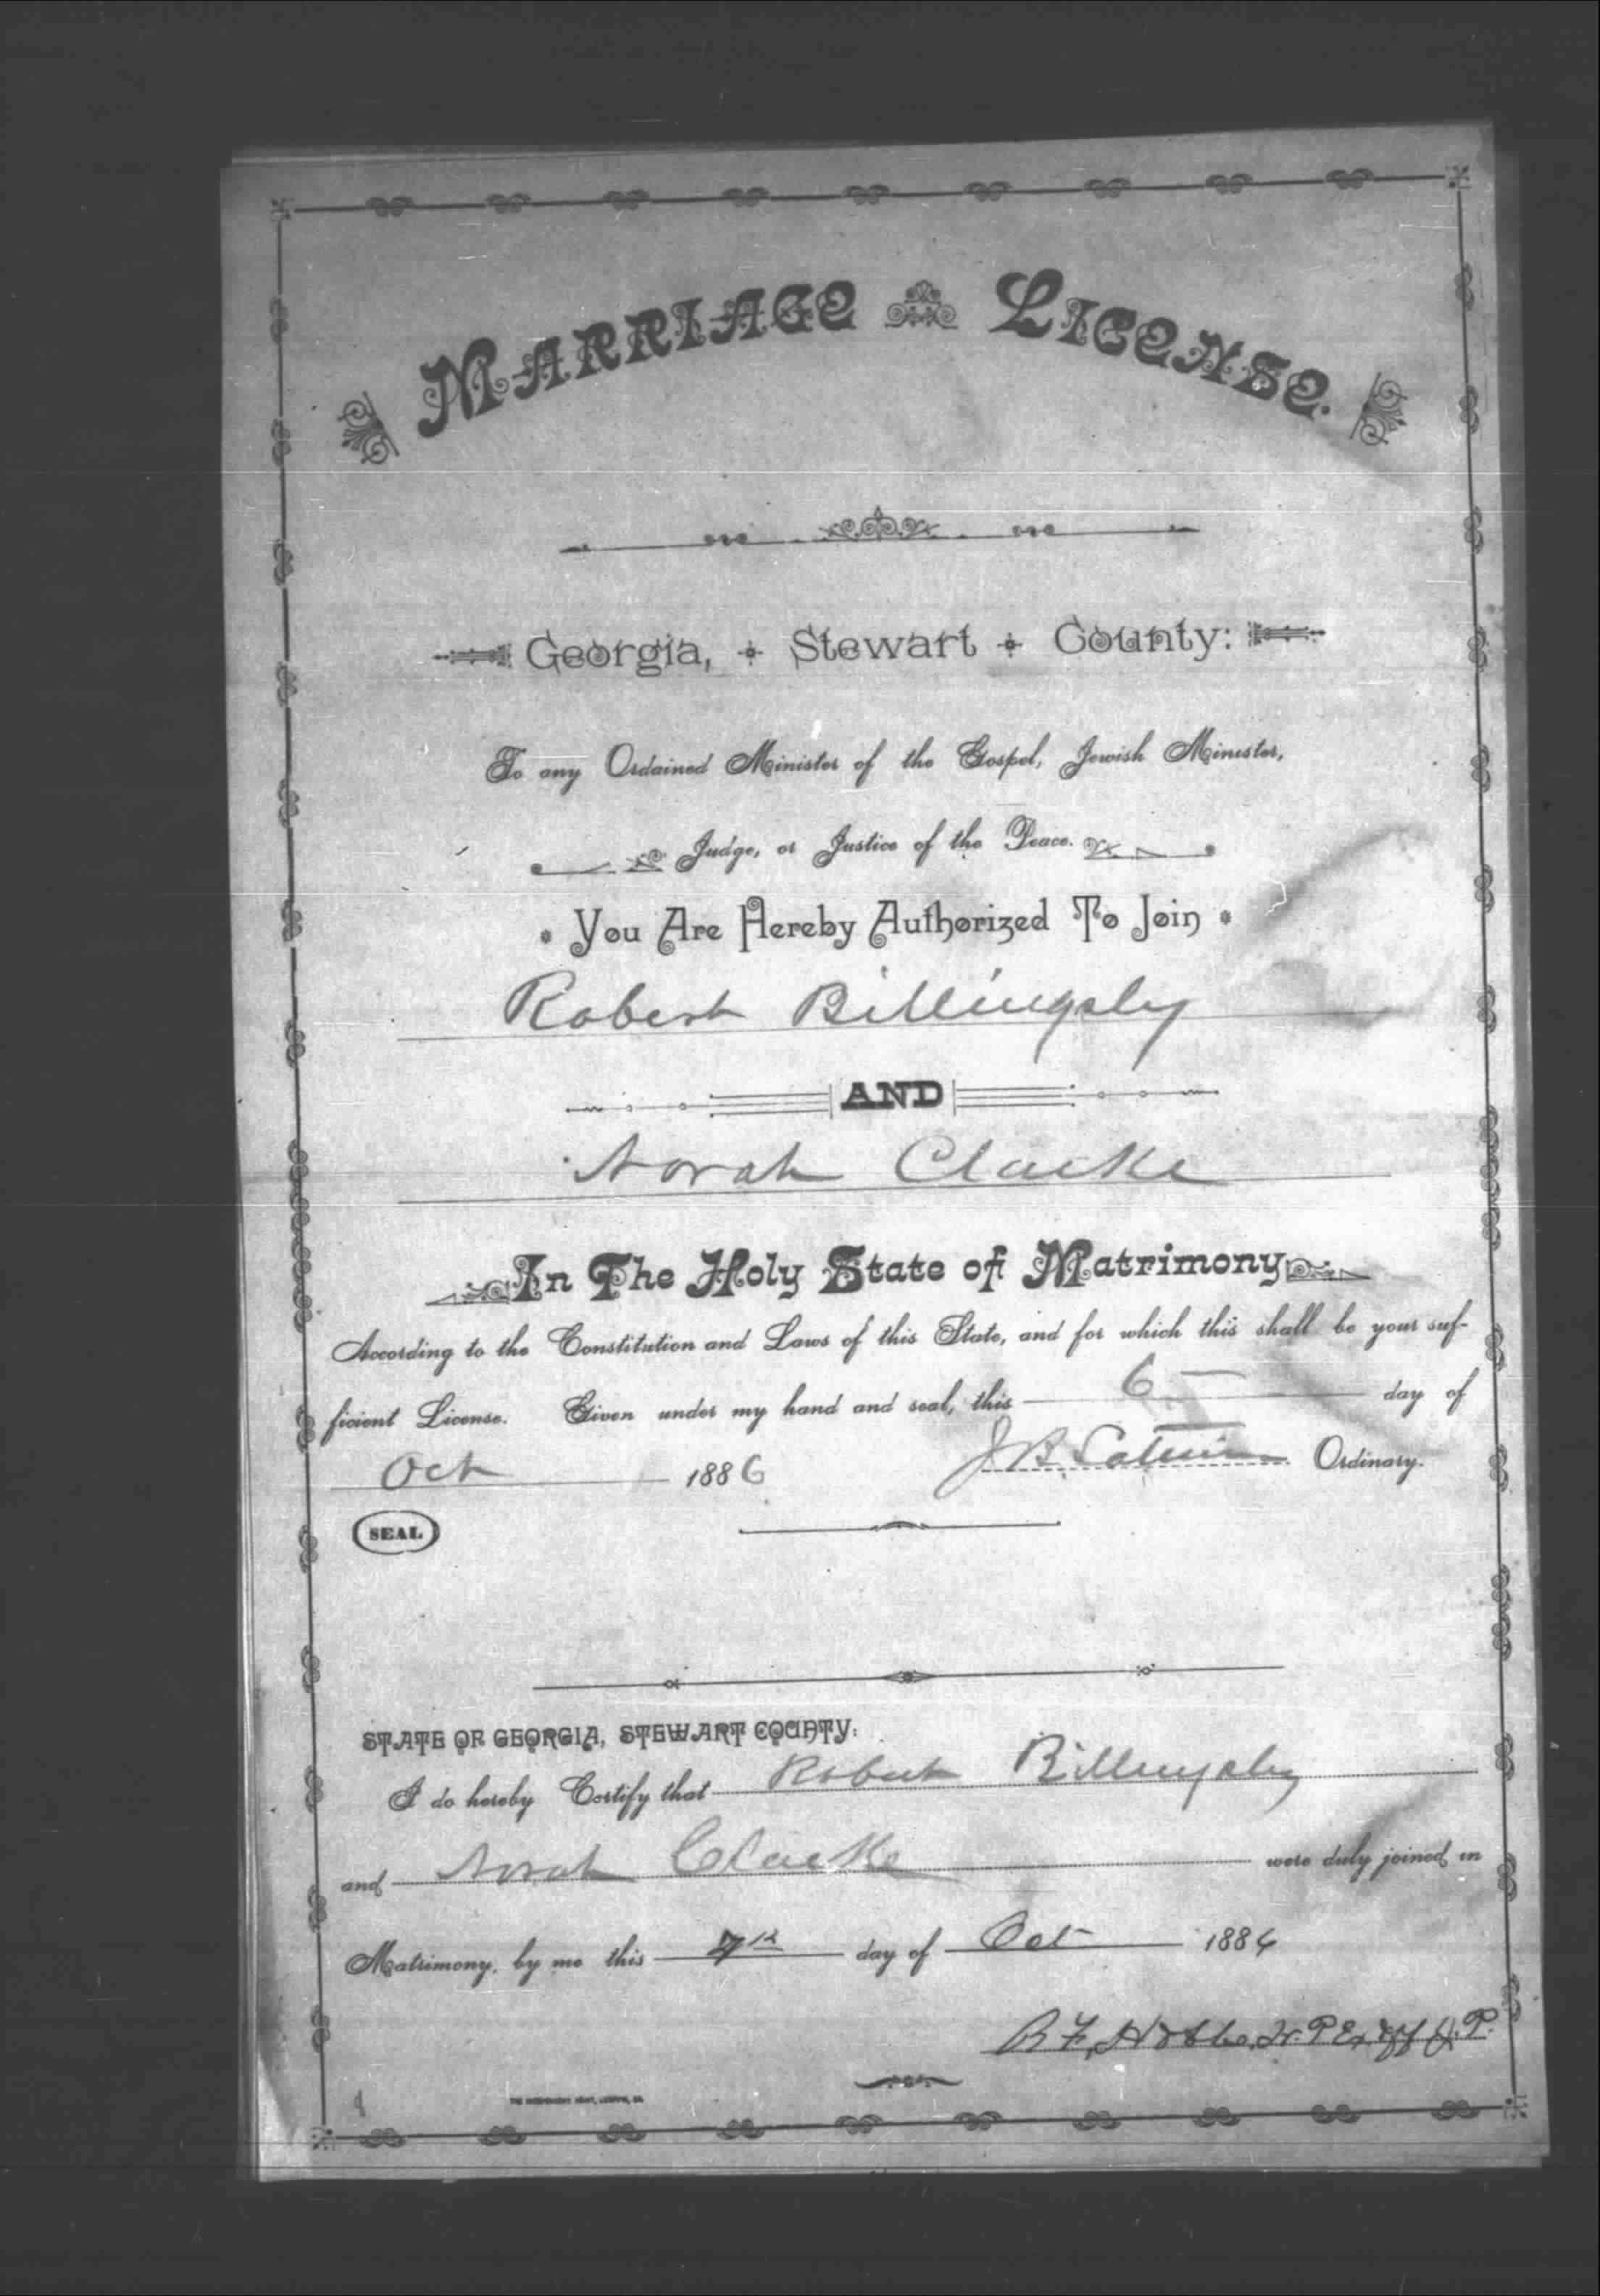 MARRIAGE LICENSE.
Georgia, Stewart County:
To any Ordained Minister of the Gospel, Jewish Minister,
Judge, or Justice of the Peace.
You Are Hereby Authorized To Join
Robert Billingsly
AND
Norah Clarke
In The Holy State of Matrimony
According to the Constitution and Laws of this State, and for which this shall be your suf-
ficient License. Given under my hand and seal, this 6 day of
Oct 1886 J. B. Ordinary.
SEAL
STATE OF GEORGIA, STEWART COUNTY:
I do hereby Certify that Robert Billingsly
and Norah Clarke were duly joined in
Matrimony, by me this 7th day of Oct 1886
B F, J.P.